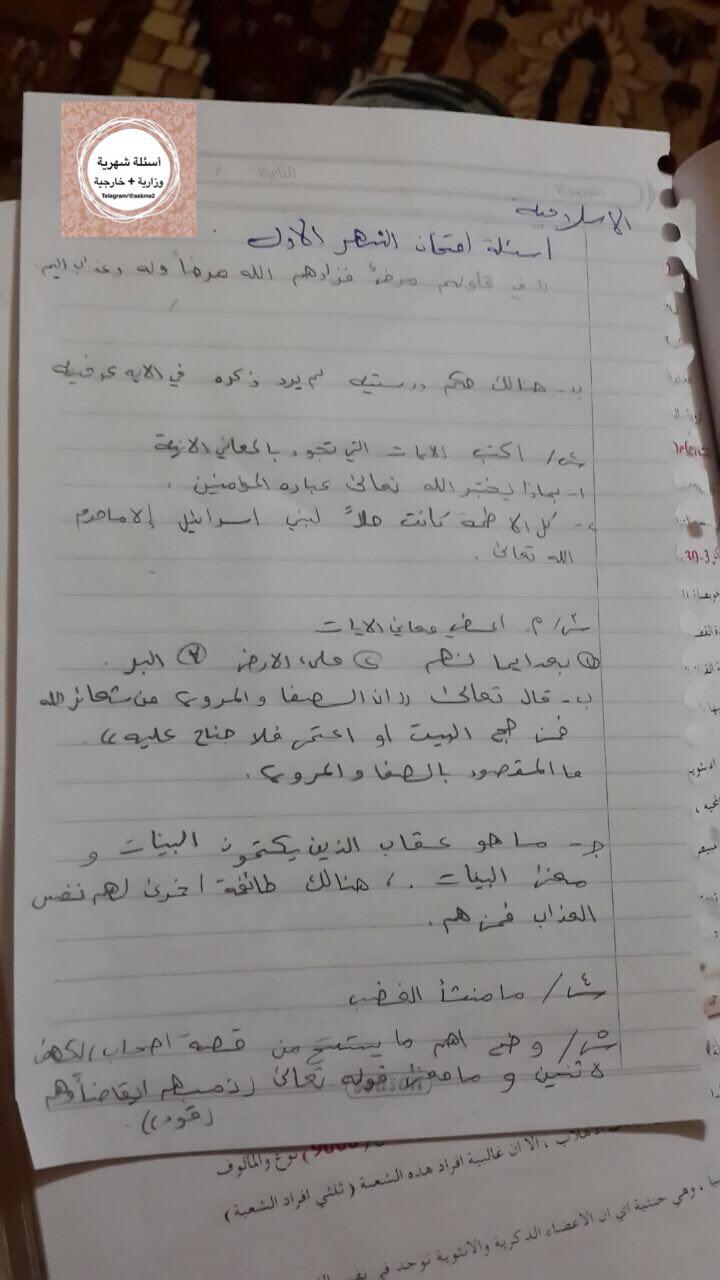 أسئلة شهرية
وزارية + خارجية
Telegram/@askme2
الاسلامية
اسئلة امتحان الشهر الاول
(( في قلوبهم مرض فزادهم الله مرضاً وله وعذاب اليم
ب - هنالك حكم درستيه لم يرد ذكره في الايه عرفيه
س٢/ اكتب الايات التي تجود بالمعاني الاتية
١- بماذا يختبر الله تعالى عباده المؤمنين .
٢- كل الاطعمة كانت حلاً لبني اسرائيل إلا ماحرم
الله تعالى .
س٣/ م. اعطي معاني الايات
① بعد ايمانهم ② ملء الارض ③ البر .
ب - قال تعالى (( ان الصفا والمروة من شعائر الله
فمن حج البيت او اعتمر فلا جناح عليه )) .
ما المقصود بالصفا والمروة .
ج - ما هو عقاب الذين يكتمون البينات و
معنى البينات . ، هنالك طائفة اخرى لهم نفس
العذاب فمن هم .
س٤/ ما منشأ الغضب
س٥/ وضح اهم ما يستنتج من قصة اصحاب الكهف
لاثنين و مامعنى قوله تعالى (( تحسبهم ايقاضاً وهم
رقود )) .
نوع والمألوف
، الا ان غالبية افراد هذه الشعبة ( ثلثي افراد الشعبة )
، وهي خنثية اي ان الاعضاء الذكرية والانثوية توجد في نفس